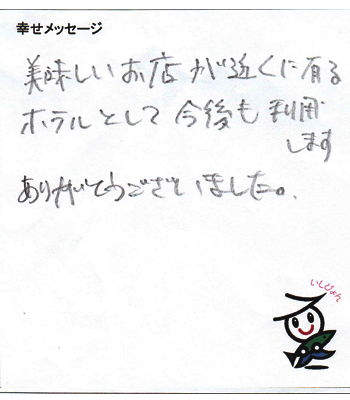 幸せメッセージ
美味しいお店が近くに有る
ホテルとして今後も利用
します
ありがとうございました。
いしぴょん